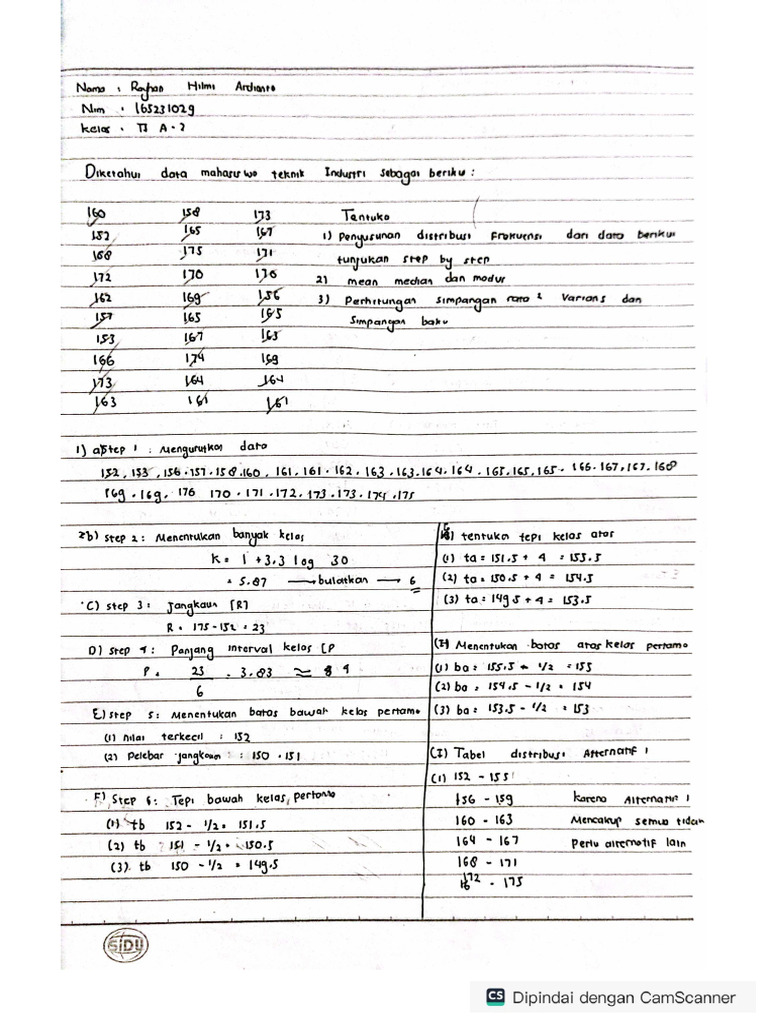 Nama : Rayhan Hilmi Ardianto
Nim : 165231029
Kelas : TI A-2
Diketahui data mahasiswo teknik Industri sebagai beriku :
160 158 173
152 165 167
168 175 171
172 170 176
162 169 156
157 165 165
153 167 163
166 174 169
173 164 164
163 161 161
Tentuka
1) Penyusunan distribusi Frekuensi dari data beriku
tunjukan step by step
2) mean median dan modus
3) Perhitungan simpangan rata 2 Varians dan
Simpangan baku
1) a) Step 1 : Mengurutkan data
152, 153, 156, 157, 158, 160, 161, 161, 162, 163, 163, 164, 164, 165, 165, 165, 166, 167, 167, 168
169, 169, 176 170, 171, 172, 173, 173, 174, 175
2b) Step 2 : Menentukan banyak kelas
K = 1 + 3.3 log 30
= 5.87 → bulatkan → 6
C) Step 3 : Jangkaun [R]
R = 175 - 152 = 23
D) Step 4 : Panjang interval kelas [P
P = 23/6 = 3.83 ≈ 4
E) Step 5 : Menentukan batas bawah kelas pertama
(1) nilai terkecil : 152
(2) Pelebar jangkoun : 150, 151
F) Step 6 : Tepi bawah kelas pertama
(1) tb 152 - 1/2 = 151.5
(2) tb 151 - 1/2 = 150.5
(3) tb 150 - 1/2 = 149.5
tentuka tepi kelas atas
(1) ta = 151.5 + 4 = 155.5
(2) ta = 150.5 + 4 = 154.5
(3) ta = 149.5 + 4 = 153.5
Menentukan batas atas kelas pertama
(1) ba = 155.5 - 1/2 = 155
(2) ba = 154.5 - 1/2 = 154
(3) ba = 153.5 - 1/2 = 153
(I) Tabel distribusi Alternatif 1
(1) 152 - 155
156 - 159 karena Alternatif 1
160 - 163 Mencakup semua tidak
164 - 167 Perlu alternatif lain
168 - 171
172 - 175
SIDU
CS Dipindai dengan CamScanner